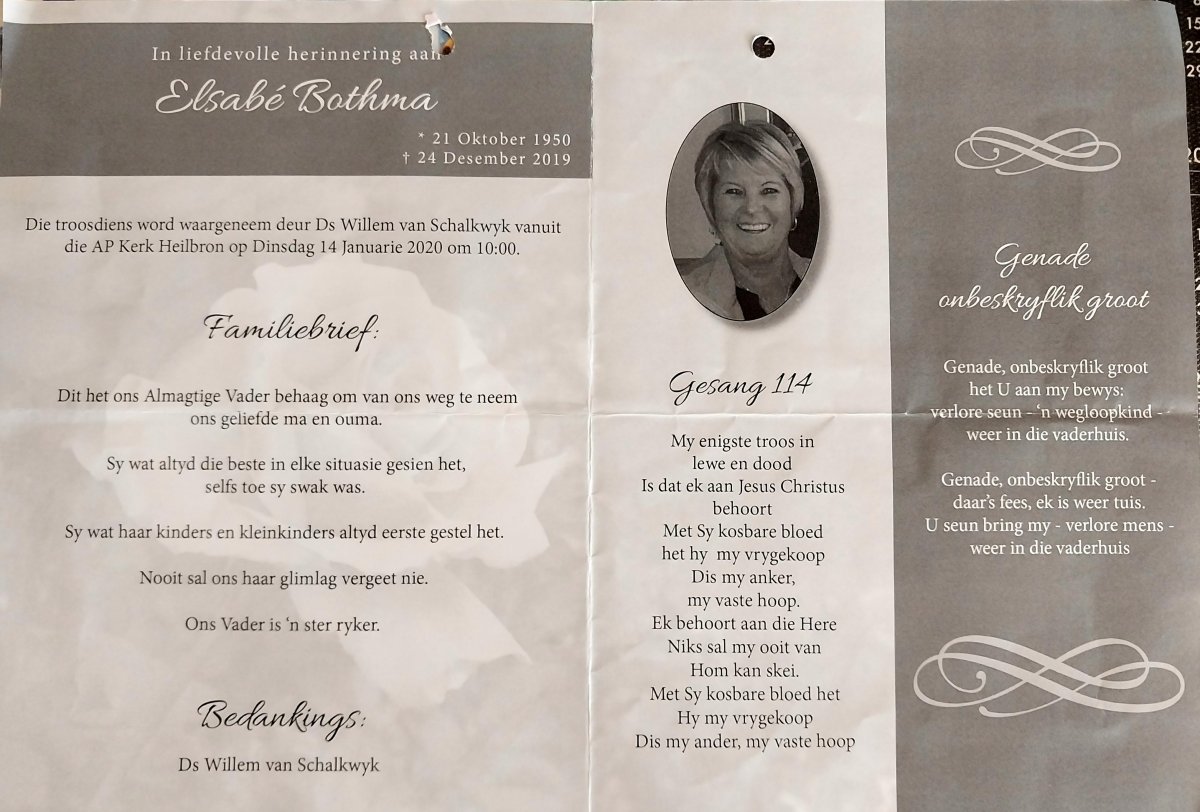 In liefdevolle herinnering aan
Elsabé Bothma
* 21 Oktober 1950
† 24 Desember 2019
Die troosdiens word waargeneem deur Ds Willem van Schalkwyk vanuit
die AP Kerk Heilbron op Dinsdag 14 Januarie 2020 om 10:00.
Familiebrief:
Dit het ons Almagtige Vader behaag om van ons weg te neem
ons geliefde ma en ouma.
Sy wat altyd die beste in elke situasie gesien het,
selfs toe sy swak was.
Sy wat haar kinders en kleinkinders altyd eerste gestel het.
Nooit sal ons haar glimlag vergeet nie.
Ons Vader is ‘n ster ryker.
Bedankings:
Ds Willem van Schalkwyk
Gesang 114
My enigste troos in
lewe en dood
Is dat ek aan Jesus Christus
behoort
Met Sy kosbare bloed
het hy my vrygekoop
Dis my anker,
my vaste hoop.
Ek behoort aan die Here
Niks sal my ooit van
Hom kan skei.
Met Sy kosbare bloed het
Hy my vrygekoop
Dis my ander, my vaste hoop
Genade
onbeskryflik groot
Genade, onbeskryflik groot
het U aan my bewys:
verlore seun - ‘n wegloopkind -
weer in die vaderhuis.
Genade, onbeskryflik groot -
daar’s fees, ek is weer tuis.
U seun bring my - verlore mens -
weer in die vaderhuis
15
22
29